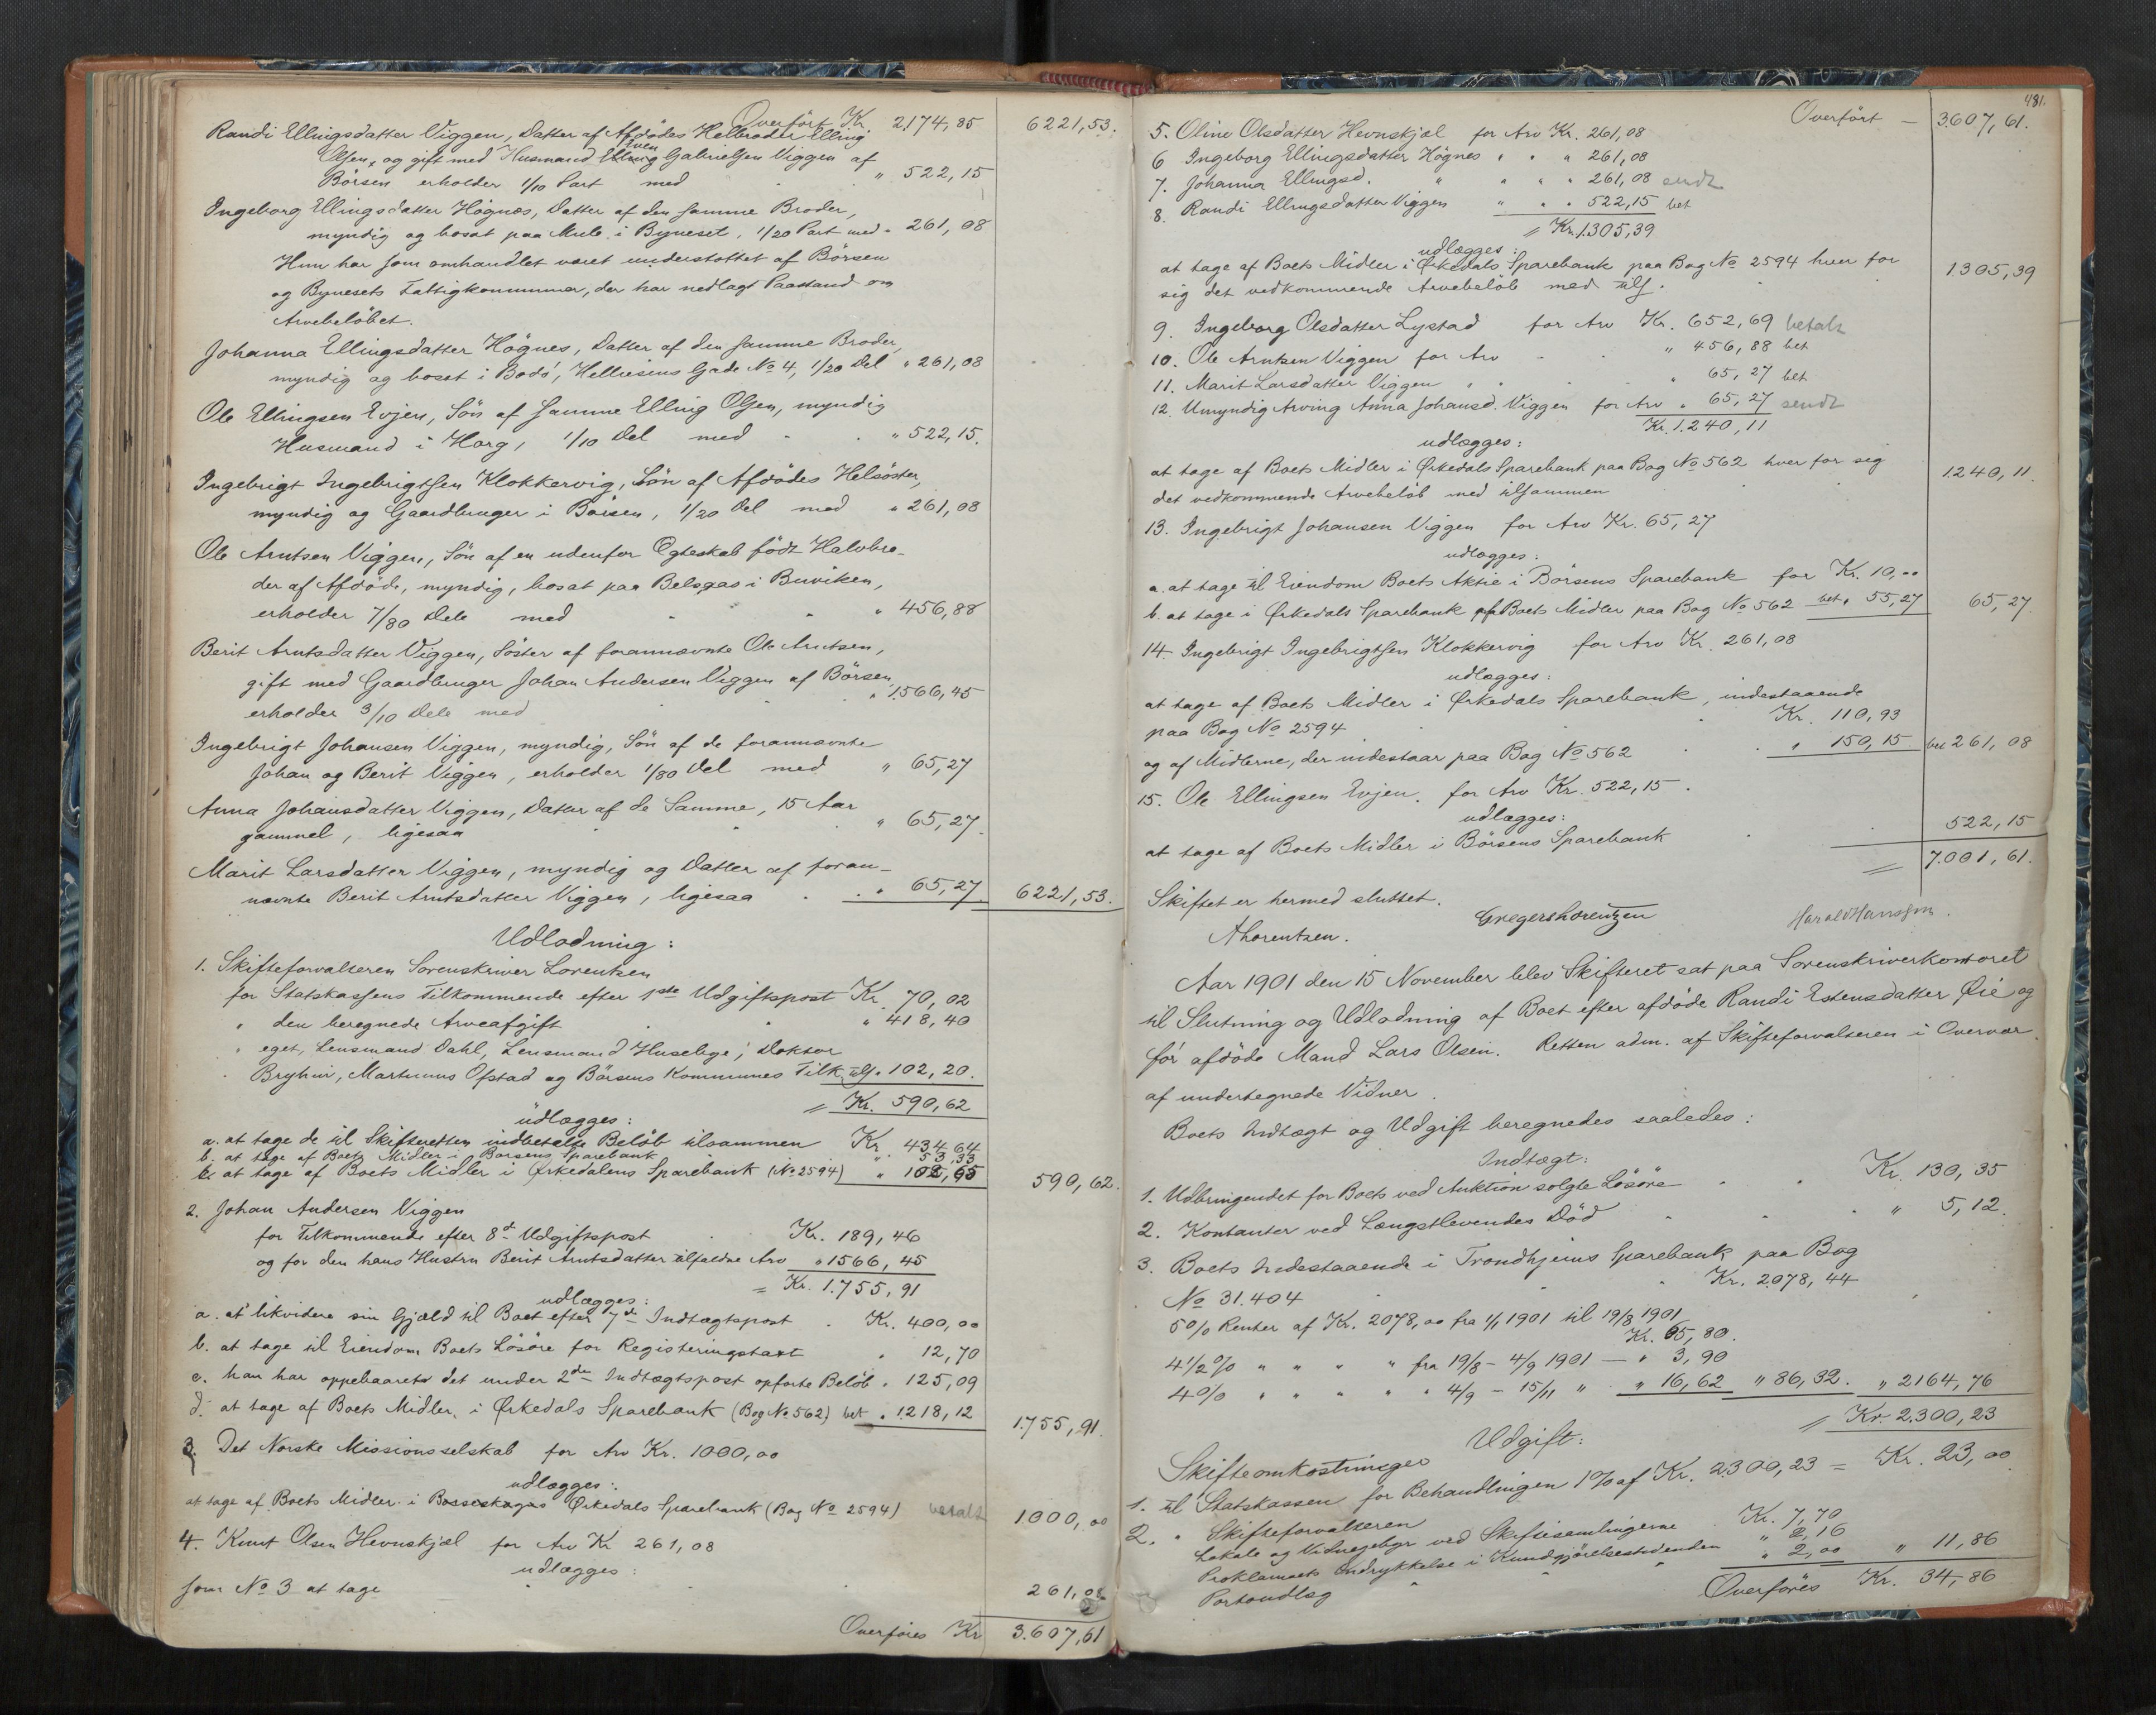 Overført Kr. 2174,85 6221,53.
Randi Ellingsdatter Viggen, Datter af Afdødes Helbroder Elling
Olsen, og gift med Husmand Even Gabrielsen Viggen af
Börsen erholder 1/10 Part med " 522,15
Ingeborg Ellingsdatter Högnes, Datter af den samme Broder,
myndig og bosat paa Mule i Byneset, 1/20 Part med " 261,08
Hun har som omhandlet været understøttet af Börsen
og Bynesets Fattigkommuner, der har nedlagt Paastand om
Arvebeløbet.
Johanna Ellingsdatter Högnes, Datter af den samme Broder,
myndig og bosat i Bodö, Hellesens Gade No 4, 1/20 Del " 261,08
Ole Ellingsen Evjen, Sön af samme Elling Olsen, myndig
Husmand i Horg, 1/10 Del med " 522,15.
Ingebrigt Ingebrigtsen Klokkervig, Sön af Afdödes Helsöster,
myndig og Gaardbruger i Börsen, 1/20 Del med " 261,08
Ole Arntsen Viggen, Sön af en udenfor Egteskab födt Halvbro-
der af Afdöde, myndig, bosat paa Belsaas i Buviken,
erholder 7/80 Dele med " 456,88
Berit Arntsdatter Viggen, Söster af forannævnte Ole Arntsen,
gift med Gaardbruger Johan Andersen Viggen af Börsen,
erholder 3/10 Dele med " 1566,45
Ingebrigt Johansen Viggen, myndig, Sön af de forannævnte
Johan og Berit Viggen, erholder 1/80 Del med " 65,27
Anna Johansdatter Viggen, Datter af de Samme, 15 Aar
gammel, ligesaa " 65,27.
Marit Larsdatter Viggen, myndig og Datter af foran-
nævnte Berit Arntsdatter Viggen, ligesaa " 65,27 6221,53.
Udlodning:
1. Skifteforvalteren Sorenskriver Lorentzen
for Statskassens Tilkommende efter 1ste Udgiftspost Kr. 70,02
" den beregnede Arveafgift " 418,40
" eget, Lensmand Dahl, Lensmand Huseby, Doktor
Bryhn, Martinus Ofstad og Börsens Kommunes Tilk. tils. 102,20.
= Kr. 590,62
udlægges:
a. at tage de til Skifteretten indbetalte Beløb tilsammen Kr. 434,64
b. at tage af Boets Midler i Börsens Sparebank " 53,33
c. at tage af Boets Midler i Ørkedalens Sparebank (No 2594) " 102,65 590,62.
2. Johan Andersen Viggen
for Tilkommende efter 8de Udgiftspost Kr. 189,46
og for den hans Hustru Berit Arntsdatter tilfaldne Arv " 1566,45
= Kr. 1.755,91
udlægges:
a. at likvidere sin Gjæld til Boet efter 7de Indtægtspost Kr. 400,00
b. at tage til Eiendom Boets Lösöre for Registreringstaxt " 12,70
c. han har oppebaaret det under 2den Indtægtspost opførte Beløb " 125,09
d. at tage af Boets Midler i Ørkedals Sparebank (Bog No 562) bet " 1218,12 1.755,91.
3. Det Norske Missionsselskab for Arv Kr. 1000,00
udlægges:
at tage af Boets Midler i Ørkedals Sparebank (Bog No 2594) betalt 1000,00
4. Knut Olsen Hevnskjæl for Arv Kr 261,08
udlægges:
som No 3 at tage 261,08
Overføres Kr 3.607,61
481.
Overført — 3607,61.
5. Oline Olsdatter Hevnskjæl for Arv Kr. 261,08
6 Ingeborg Ellingsdatter Högnes " " " 261,08
7. Johanna Ellingsd. " " " " 261,08 sendt
8. Randi Ellingsdatter Viggen " " " 522,15 bet
= Kr. 1.305,39
udlægges:
at tage af Boets Midler i Ørkedals Sparebank paa Bog No 2594 hver for
sig det vedkommende Arvebeløb med tils. 1305,39
9. Ingeborg Olsdatter Lystad for Arv Kr. 652,69 betalt
10. Ole Arntsen Viggen for Arv " 456,88 bet
11. Marit Larsdatter Viggen " " " 65,27 bet
12. Umyndig Arving Anna Johansd. Viggen for Arv " 65,27 sendt
Kr. 1.240,11
udlægges:
at tage af Boets Midler i Ørkedals Sparebank paa Bog No 562 hver for sig
det vedkommende Arvebeløb med tilsammen 1240,11.
13. Ingebrigt Johansen Viggen for Arv Kr. 65,27
udlægges:
a. at tage til Eiendom Boets Aktie i Börsens Sparebank for Kr. 10,00
b. at tage i Ørkedals Sparebank af Boets Midler paa Bog No 562 bet. " 55,27 65,27.
14. Ingebrigt Ingebrigtsen Klokkervig for Arv Kr. 261,08
udlægges:
at tage af Boets Midler i Ørkedals Sparebank, indestaaende
paa Bog No 2594 Kr. 110,93
og af Midlerne, der indestaar paa Bog No 562 " 150,15 bet 261,08
15. Ole Ellingsen Evjen. for Arv Kr. 522,15.
udlægges:
at tage af Boets Midler i Börsens Sparebank 522,15
= 7.001,61.
Skiftet er hermed sluttet.
A Lorentzen. Gregers Lorentzen Harald Hanssen.
Aar 1901 den 15 November blev Skifteret sat paa Sorenskriverkontoret
til Slutning og Udlodning af Boet efter afdöde Randi Estensdatter Øie og
før afdöde Mand Lars Olsen. Retten adm. af Skifteforvalteren i Overvær
af undertegnede Vidner.
Boets Indtægt og Udgift beregnedes saaledes:
Indtægt:
1. Udbringendet for Boets ved Auktion solgte Lösöre Kr. 130,35
2. Kontanter ved Længstlevendes Död " 5,12.
3. Boets Indestaaende i Trondhjems Sparebank paa Bog
No 31.404 Kr. 2078,44
5% Renter af Kr. 2078,00 fra 1/1 1901 til 19/8 1901
Kr. 65,80.
4 1/2 % " " " " fra 19/8 - 4/9 1901 — " 3,90
4% " " " " " 4/9 - 15/11 " " 16,62 " 86,32. " 2164,76
= Kr. 2.300,23
Udgift:
Skifteomkostninger
1. til Statskassen for Behandlingen 1% af Kr. 2300,23 = Kr. 23,00
2. " Skifteforvalteren
Lokale og Vidnegebyr ved Skiftesamlingerne Kr. 7,70
Proklamaets Indrykkelse i Kundgjørelsestidenden " 2,16
Portoudlæg " 2,00 " 11,86
Overføres Kr. 34,86